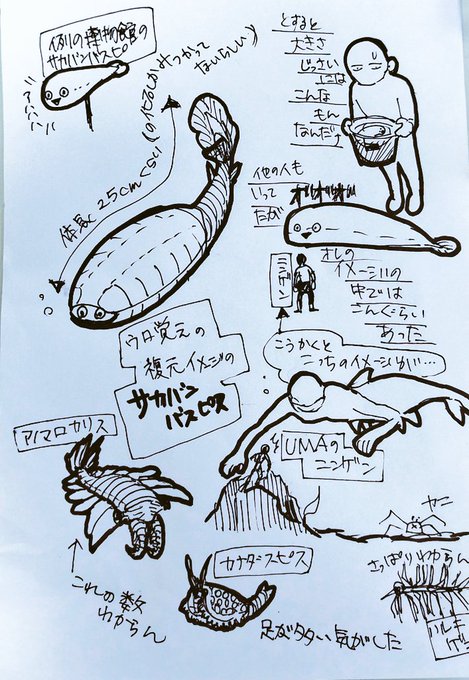 例の博物館の
サカバンバスピス
体長25cmくらい
(の化石しかみつかって
ないらしい)
とすると
大きさ
じっさい
には
こんな
もん
なんだナ
他の人も
いって
たが
オレの
イメージの
中では
こんぐらい
あった
ニンゲン
こうかくと
こっちのイメージが…
ウロ覚えの
復元イメージの
サカバン
バスピス
UMAの
ニンゲン
アノマロカリス
これの数
わからん
カナダスピス
足がタタい気がした
ヤニ
さっぱりわからん
ハルキ
ゲニ